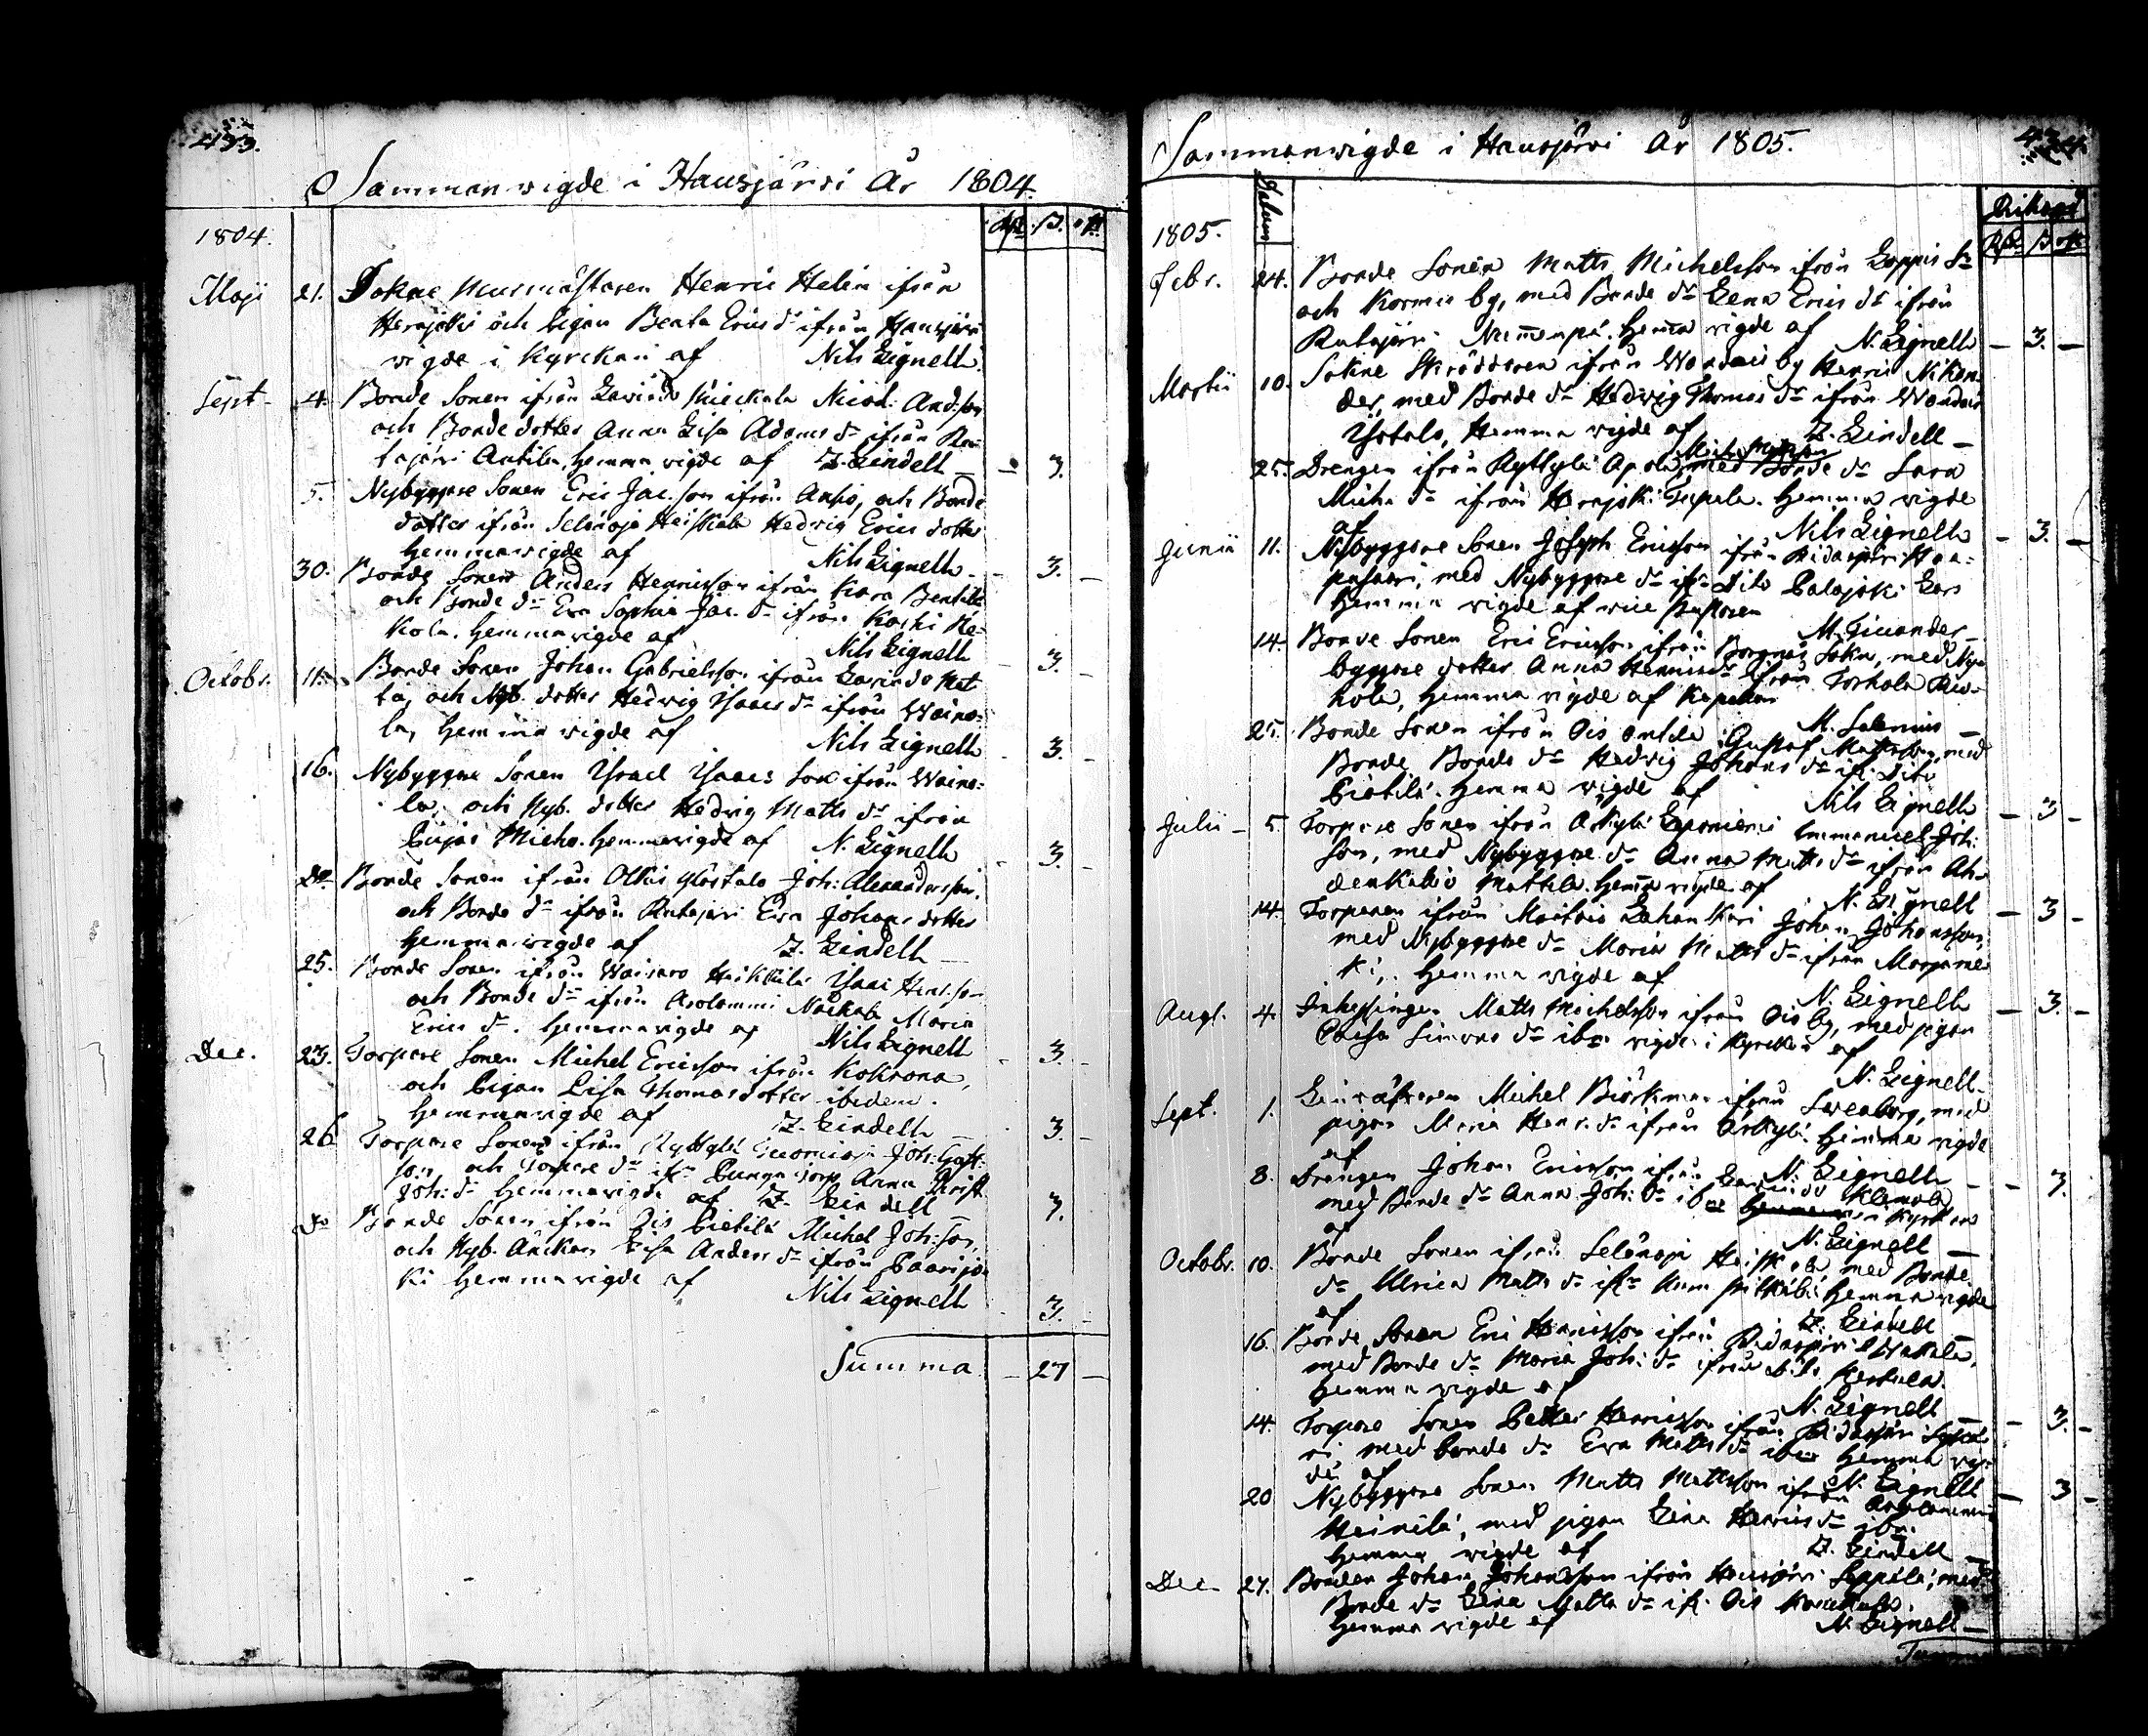 433.
Sammanvigde i Hausjärvi År 1804.
1804.
Maji 21. Sokne Murmästaren Henric Helin ifrån
Herajoki och Pigan Beata Erics dr ifrån Hausjärvi
vigde i Kyrckan af Nils Lignell
Sept. 4. Bonde Sonen ifrån Lavindo Nicod. And:son
och Bonde dotter Anna Lisa Adams dr ifrån Ru-
tajärvi Antila, hemma vigde af Z. Lindell — 3.
5. Nybyggare Sonen Eric Jac.son ifrån Ansio, och Bonde
dotter ifrån Selänoja Heiskala Hedvig Erics dotter
hemmavigde af Nils Lignell — 3. —
30. Bonde Sonen Anders Henricsson ifrån Kara Benttilä
och Bonde dr Eva Sophia Jac. dr ifrån Koski He-
kola. hemmavigde af Nils Lignell — 3. —
Octobr. 11. Bonde Sonen Johan Gabrielsson ifrån Lavindo Mat
ta, och Nyb. dotter Hedvig Isaacs dr ifrån Waino-
la, hemma vigde af Nils Lignell — 3. —
16. Nybyggare Sonen Israel Isaacs Son ifrån Waino-
la, och Nyb. dotter Hedvig Matts dr ifrån
Pujas Micko. hemmavigde af N. Lignell — 3. —
do Bonde Sonen ifrån Oikis Yöstalo Joh: Alexandersson,
och Bonde dr ifrån Rutajärvi Eva Johans dotter
hemmavigde af Z. Lindell —
25. Bonde Sonen ifrån Waisaro Heikkilä Isaac Henr.son
och Bonde dr ifrån Arolammi Maria
Erics dr. hemmavigde af Nils Lignell — 3. —
Dec. 23. Torpare Sonen Michel Ericsson ifrån Kokrona,
och Pigan Lisa Thomasdotter ibidem.
hemmavigde af Z. Lindell — 3. —
26. Torpare Sonen ifrån Ryttylä Joh: Gust:
son, och Torpare dr ifrn Torp Anna Christ.
Joh: dr hemmavigde af Z. Lindell 3.
do Bonde Sonen ifrån Ois Pietilä Michel Joh:son,
och Nyb. Änckan Lisa Anders dr ifrån Paarijo-
ki hemmavigde af Nils Lignell — 3. —
Summa — 27 —
434.
Sammanvigde i Hausjärvi År 1805.
1805.
Febr. 24. Bonde Sonen Matts Michelsson ifrån Loppis Sn
och Kormu by, med Bonde dr Lena Erics dr ifrån
Rutajärvi Nummenpä. hemma vigde af N. Lignell — 3. —
Martii 10. Sokne Skräddaren ifrån by Henric Niken-
der, med Bonde dr Hedvig Thomas dr ifrån
Yötalo, hemma vigde af Z. Lindell —
25. Drengen ifrån Ryttylä Apola Matts Mattsson med Bonde dr Sara
Mich: dr ifrån Herajoki Tupala. hemma vigde
af Nils Lignell — 3. —
Junii 11. Nybyggare Sonen Joseph Ericsson ifrån Ridasjärvi Haa-
pasaari, med Nybyggare dr ifrn dito Palajoki Lars
hemma vigde af vice Pastoren M. Tiuander —
14. Bonde Sonen Eric Ericsson ifrån Borgnäs Sokn, med Ny-
byggare dotter Anna Henricsdr ifrån Torhola
hola, hemma vigde af Kapellan M. Salenius —
25. Bonde Sonen ifrån Ois Antila Gustaf Mattsson, med
Bonde Bonde dr Hedvig Johans dr ifr. dito
Pietilä. hemma vigde af Nils Lignell — 3 —
Julii 5. Torpare Sonen ifrån Erkylä Emmanuel Joh:
son, med Nybyggare dr Anna Matts dr ifrån Ah-
denkallio Mattila. hemma vigde af N. Lignell — 3 —
14. Torparen ifrån Lahankari Johan Johansson,
med Nybyggare dr Maria Matts dr ifrån
ki, hemma vigde af N. Lignell — 3. —
Aug. 4. Inhysingen Matts Michelsson ifrån Ois by, med pigan
Caisa Simons dr ibm vigde i Kyrckan af N. Lignell
Sept. 1. Linväfvaren Michel Biörkman ifrån Sveaborg, med
pigan Maria Henr. dr ifrån Erkylä. hemma vigde
af N. Lignell — 3.
8. Drengen Johan Ericsson ifrån Lavindo Klemola
med Bonde dr Anna Joh: dr ibm i Kyrckan
af N. Lignell —
Octobr. 10. Bonde Sonen ifrån Selänoja Heiskala med Bonde
dr Ulrica Matts dr ifrn hemma vigde
af Z. Lindell —
16. Bonde Sonen Eric Henricsson ifrån Ridasjärvi
med Bonde dr Maria Joh: dr ifrån dito
hemma vigde af N. Lignell — 3. —
14. Torpare Sonen Petter Henricsson ifrån Ridasjärvi
ri, med Bonde dr Eva Matts dr ibm hemma vig-
de af N. Lignell — 3 —
20 Nybyggare Sonen Matts Mattsson ifrån Arolammi
Heinilä, med pigan Lena Henrics dr ibm.
hemma vigde af Z. Lindell —
Dec. 27. Bonden Johan Johansson ifrån Hausjärvi Seppälä, med
Bonde dr Lena Matts dr ifr. Ois
hemma vigde af N. Lignell —